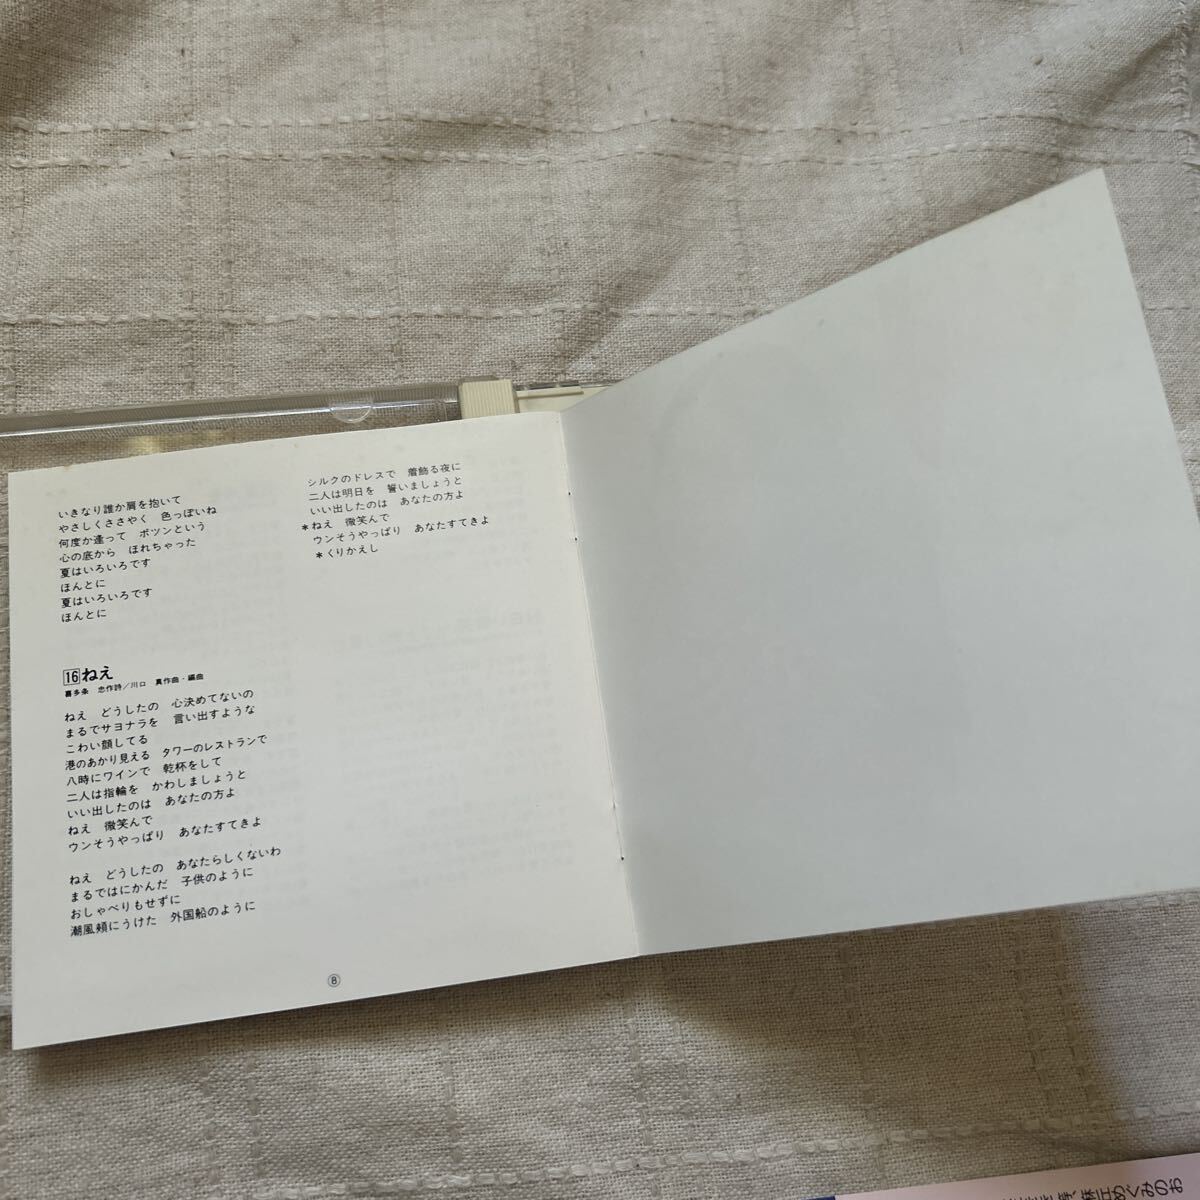 いきなり誰か肩を抱いて
やさしくささやく　色っぽいね
何度か逢って　ポツンという
心の底から　ほれちゃった
夏はいろいろです
ほんとに
夏はいろいろです
ほんとに
16 ねえ
喜多条　忠作詩／川口　真作曲・編曲
ねえ　どうしたの　心決めてないの
まるでサヨナラを　言い出すような
こわい顔してる
港のあかり見える　タワーのレストランで
八時にワインで　乾杯をして
二人は指輪を　かわしましょうと
いい出したのは　あなたの方よ
ねえ　微笑んで
ウンそうやっぱり　あなたすてきよ
ねえ　どうしたの　あなたらしくないわ
まるではにかんだ　子供のように
おしゃべりもせずに
潮風頬にうけた　外国船のように
シルクのドレスで　着飾る夜に
二人は明日を　誓いましょうと
いい出したのは　あなたの方よ
＊ねえ　微笑んで
ウンそうやっぱり　あなたすてきよ
＊くりかえし
⑧
麻丘めぐみのお